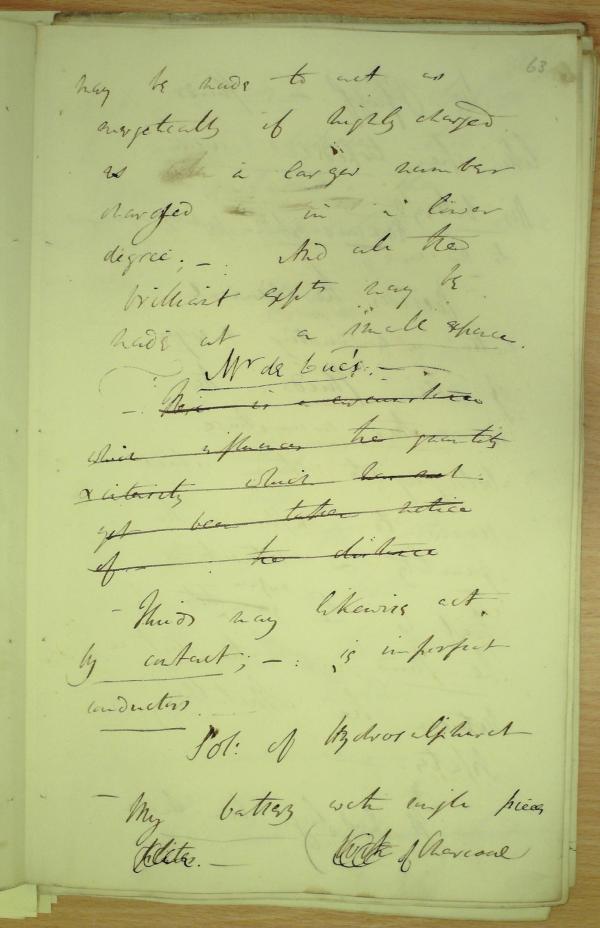 63
may be made to act as
energetically if highly charged
as a larger number
charged in a lower
degree; – And all the
brilliant expts may be
made at a small expence.
Mr de Luc's. –
– There is a circumstance
which influences the quantity
& intensity which has not
yet been taken notice
of – the distance
– Fluids may likewise act
by contact; – : is imperfect
conductors.
Sol: of Hydrosulphuret
– My battery with single pieces
of Charcoal